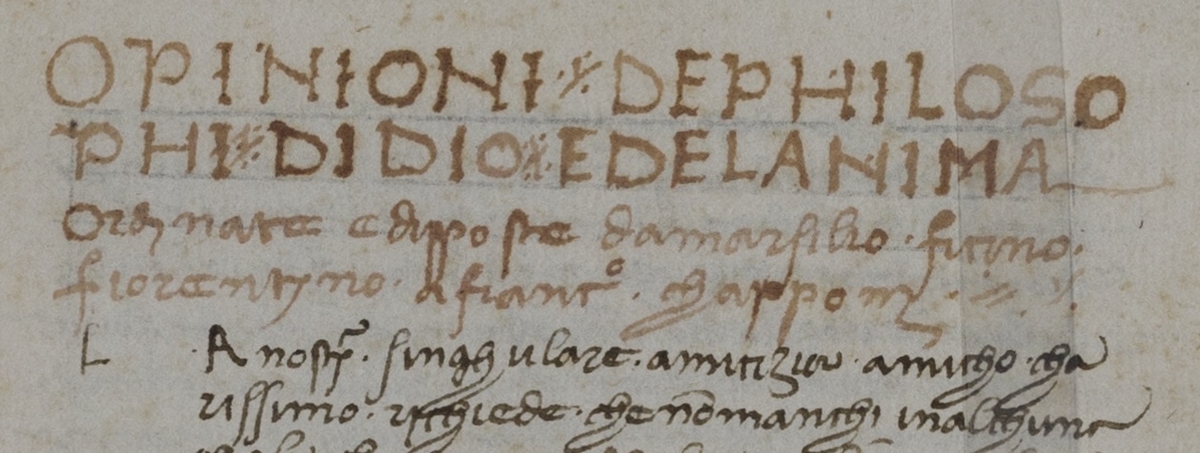 OPINIONI DEPHILOSO
PHI DI DIO E DELANIMA
Ordinate e disposte damarsilio · ficino ·
fiorentyno · afrancº · chapponj
L A nostrª · singhulare · amicizia · amicho · cha
rissimo · richiede · che nō manchi inalchune